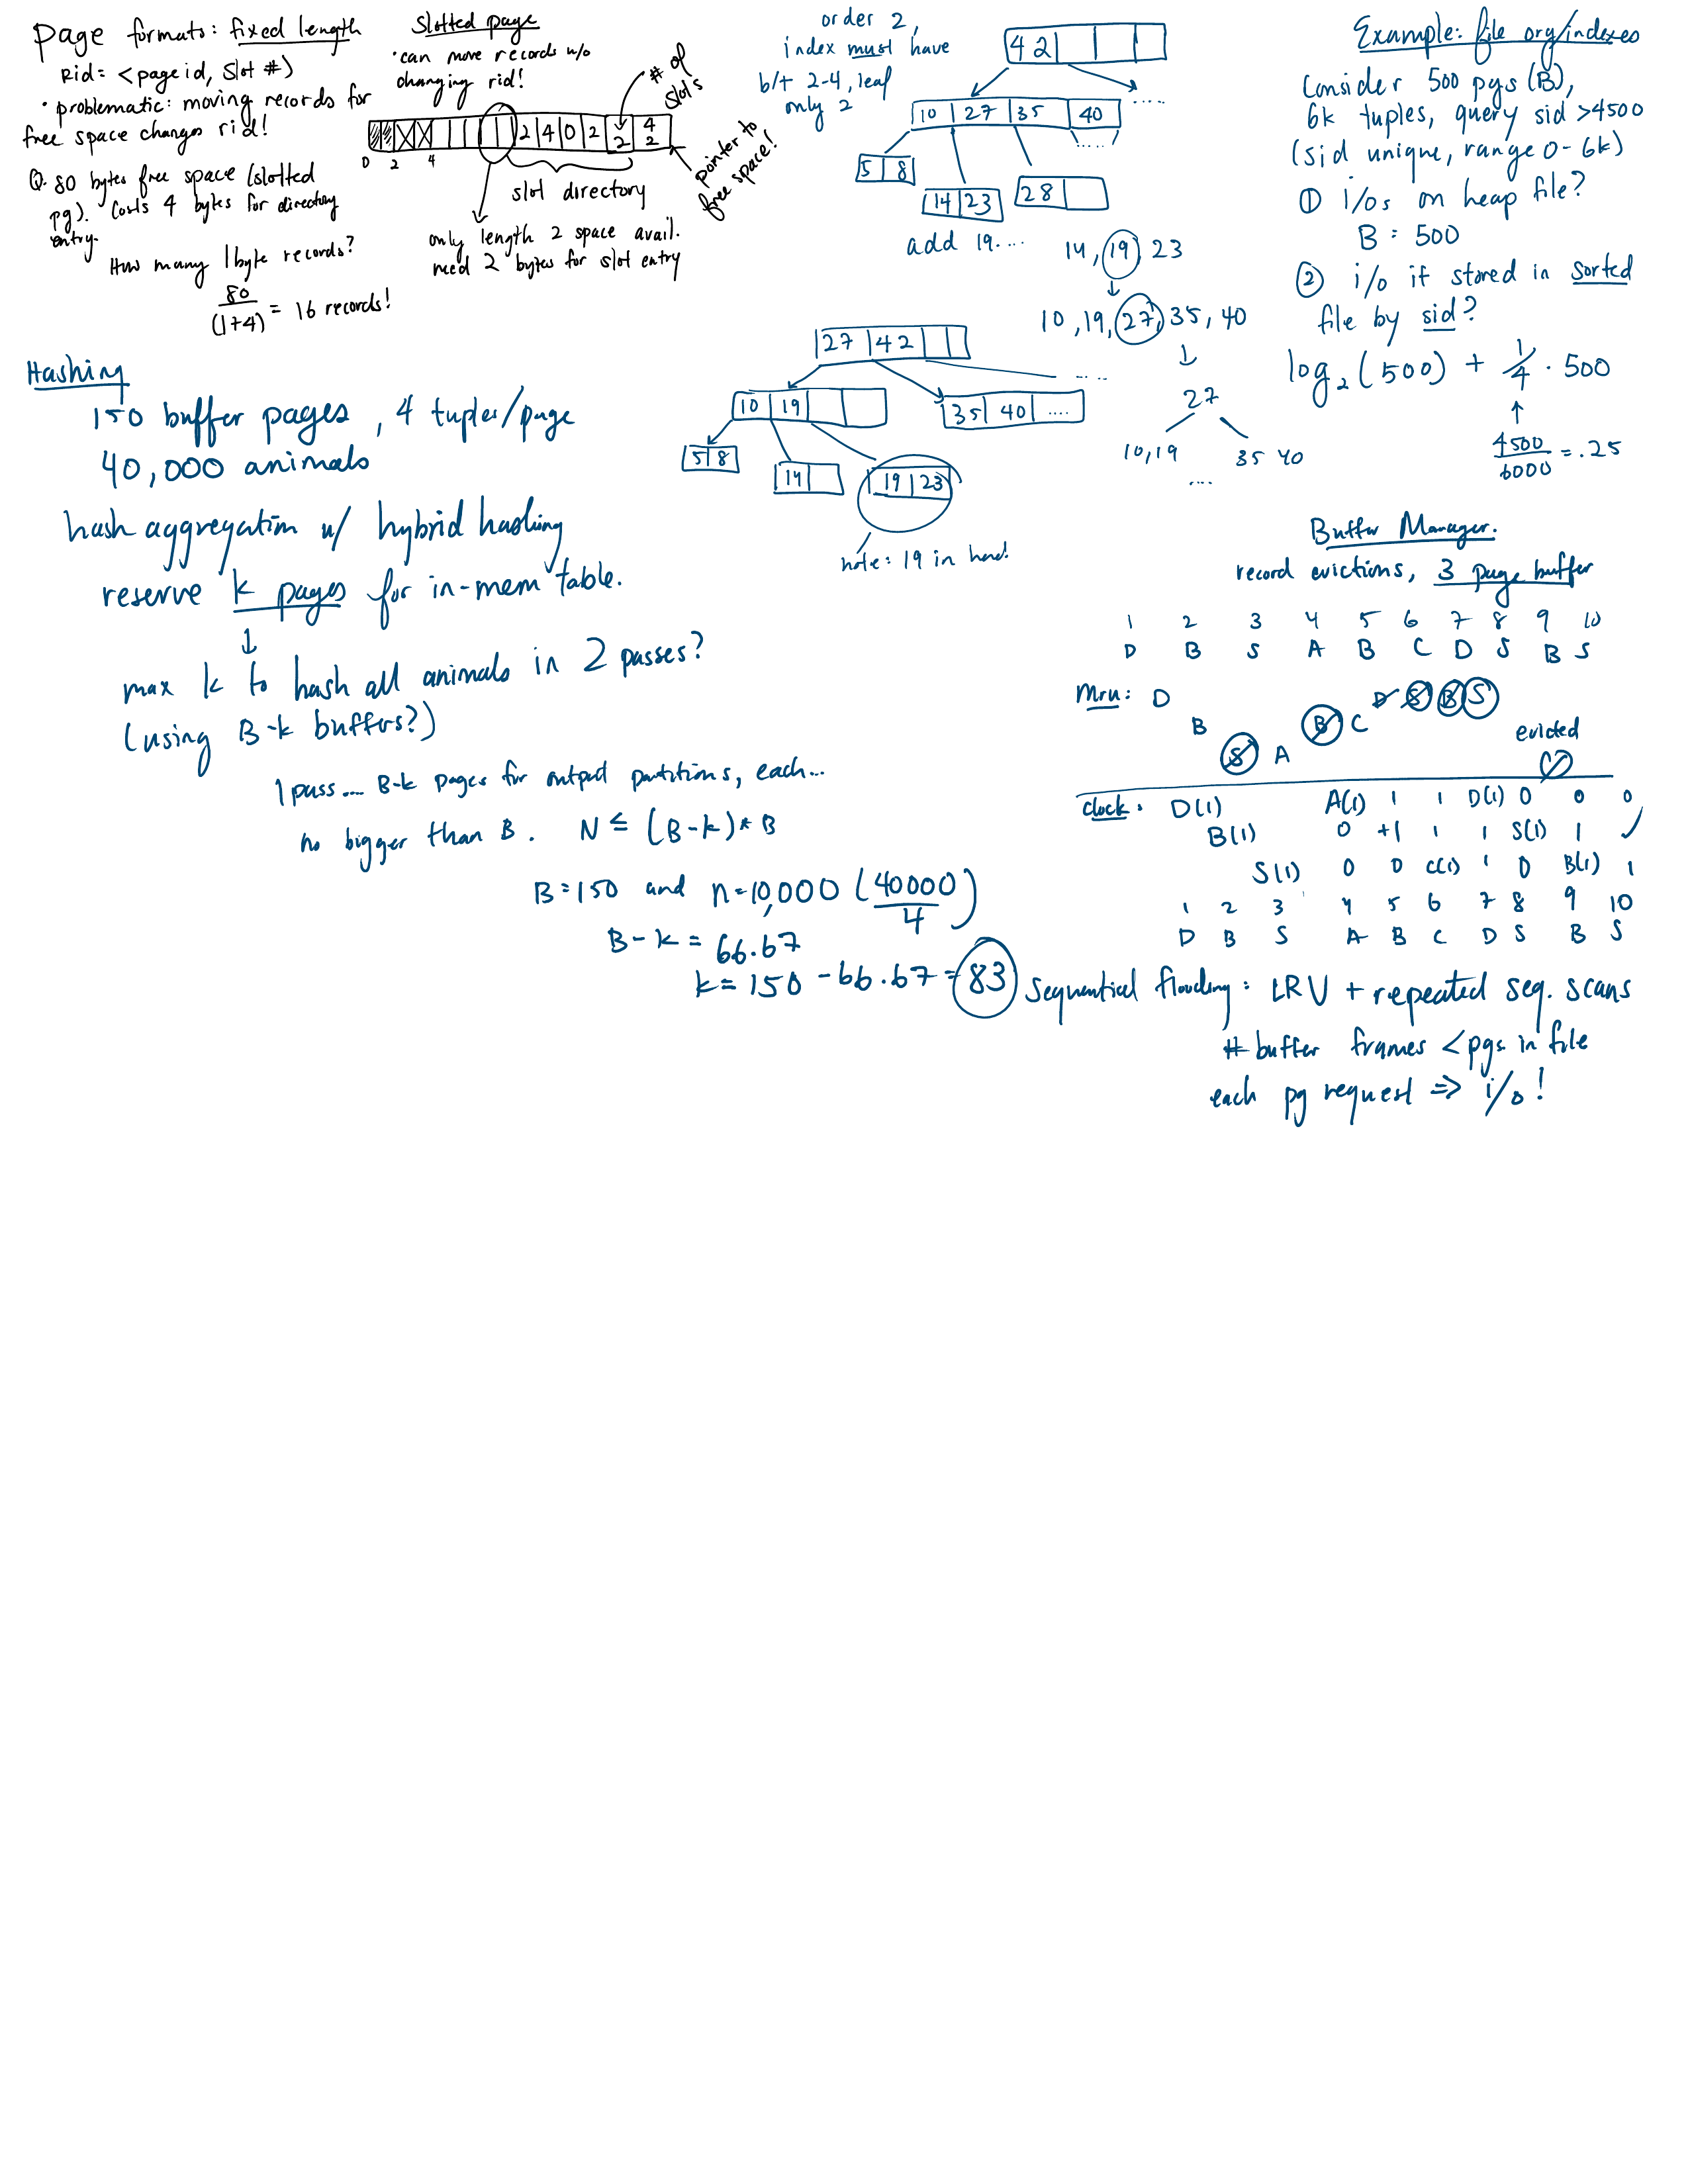 Page formats: fixed length
Rid = <page id, slot #)
• problematic: moving records for
free space changes rid!
Q. 80 bytes free space (slotted
pg). Costs 4 bytes for directory
entry.
How many 1 byte records?
80
(1+4) = 16 records!
Slotted page
• can move records w/o
changing rid!
# of
slots
2 4 0 2 2 4
2
0 2 4
slot directory
pointer to
free space!
only length 2 space avail.
need 2 bytes for slot entry
order 2,
index must have
b/t 2-4, leaf
only 2
42
10 27 35 40
.....
.....
5 8
14 23
28
add 19....
14, 19, 23
10, 19, 27, 35, 40
27
10,19 35 40
....
27 42
.....
10 19
35 40 ....
5 8
14
19 23
note: 19 in here!
Example: file org/indexes
Consider 500 pgs (B),
6k tuples, query sid >4500
(sid unique, range 0-6k)
① i/os on heap file?
B = 500
② i/o if stored in sorted
file by sid?
log2 (500) + 1/4 · 500
4500
6000 = .25
Hashing
150 buffer pages, 4 tuples/page
40,000 animals
hash aggregation w/ hybrid hashing
reserve k pages for in-mem table.
max k to hash all animals in 2 passes?
(using B-k buffers?)
1 pass.... B-k pages for output partitions, each...
no bigger than B. N ≤ (B-k)* B
B=150 and n=10,000 (40000
4)
B-k = 66.67
k = 150 - 66.67 = 83
Buffer Manager.
record evictions, 3 page buffer
1 2 3 4 5 6 7 8 9 10
D B S A B C D S B S
Mru: D
D S B S
B
B C
S A
evicted
Clock: D(1) A(1) 1 1 D(1) 0 0 0
B(1) 0 +1 1 1 S(1) 1
S(1) 0 0 C(1) 1 0 B(1) 1
1 2 3 4 5 6 7 8 9 10
D B S A B C D S B S
Sequential flooding: LRU + repeated seq. scans
# buffer frames < pgs. in file
each pg request => i/o!